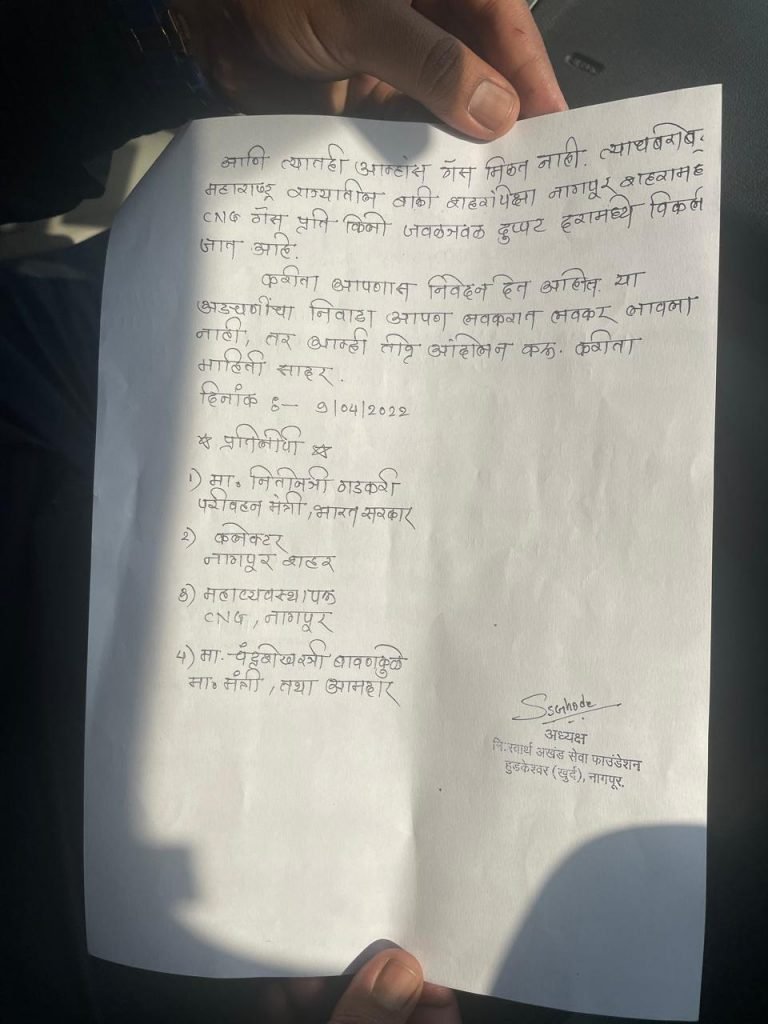 आणि त्यातही आम्हांस गॅस मिळत नाही. त्याचबरोबर,
महाराष्ट्र राज्यातील बाकी शहरांपेक्षा नागपूर शहरामध्ये
CNG गॅस प्रति किलो जवळजवळ दुप्पट दरामध्ये विकले
जात आहे.
करीता आपणास निवेदन देत आहोत. या
अडचणींचा निवाडा आपण लवकरात लवकर लावला
नाही, तर आम्ही तीव्र आंदोलन करू. करीता
माहिती सादर.
दिनांक :- 9/04/2022
☆ प्रतिलीपी ☆
1) मा. नितीनजी गडकरी
परीवहन मंत्री, भारत सरकार
2) कलेक्टर
नागपूर शहर
3) महाव्यवस्थापक
CNG, नागपूर
4) मा. चंद्रशेखरजी बावणकुळे
मा. मंत्री, तथा आमदार
SSGhode
अध्यक्ष
नि:स्वार्थ अखंड सेवा फाउंडेशन
हुडकेश्वर (खुर्द), नागपूर.